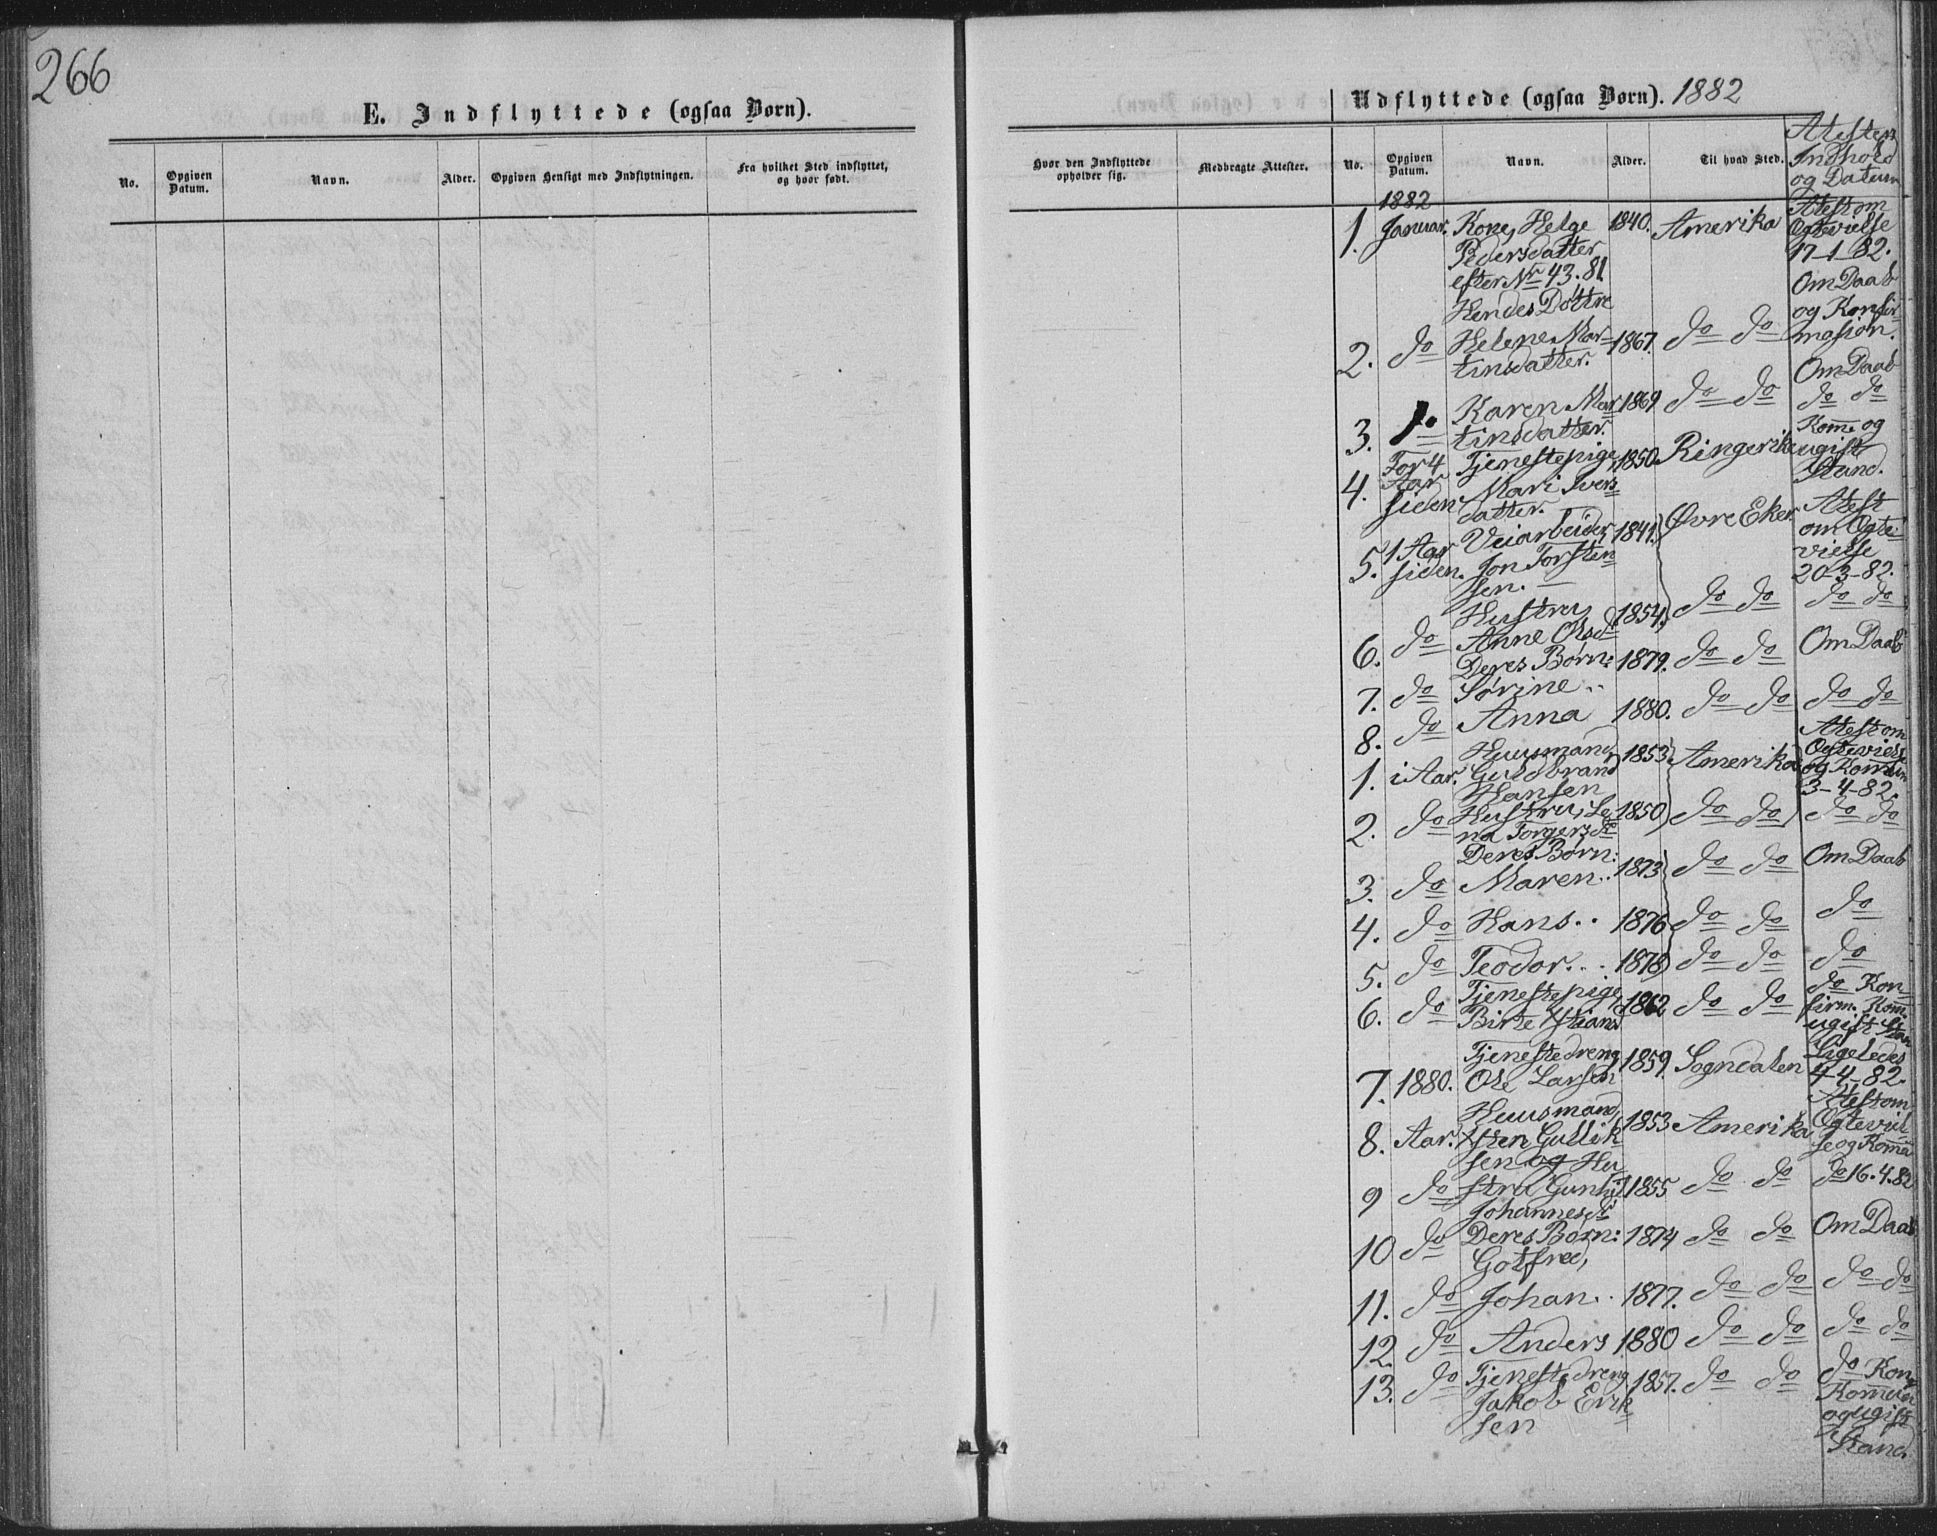 266
E. Indflyttede (ogsaa Børn).
No. Opgiven Datum. Navn. Alder. Opgiven Hensigt med Indflytningen. Fra hvilket Sted indflyttet, og hvor født.
Hvor den Indflyttede opholder sig. Medbragte Attester.
Udflyttede (ogsaa Børn). 1882
No. Opgiven Datum. Navn. Alder. Til hvad Sted. Atesten
Indhold
og Datum
1882
1. Januar. Kone, Helge 1840. Amerika Atest om
Pedersdatter Ogtevielse
efter No 43.81 17-1-82.
Hendes Döttre Om Daab
og Konfir-
2. do Helene Mar- 1867. do do masion.
tinsdatter. Om Daab
3. Karen Mar 1869 do do do do
tinsdatter.
4. For 4 Tjenestepige, 1850. Ringerike Kome og
Aar Mari Ivers ugift
siden datter. Stand.
5. 1 Aar Veiarbeider, 1841. Øvre Eker Atest
siden. Jon Torsten om Ogte-
sen. vielse
20-3-82.
6. do Hustru, 1854. do do do do
Anne Olsdr
Deres Børn:
7. do Sörine.. 1879. do do Om Daab
8. do Anna 1880. do do do do
1. i Aar. Huusmand, 1853 Amerika Atest om
Guldbrand Ogtevielse
Hansen 3-4-82.
2. do Hustru, Le 1850 do do do do
na Torgersdr
Deres Børn:
3. do Maren.. 1873 do do Om Daab
4. do Hans.. 1876 do do do
5. do Teodor... 1878 do do do
6. do Tjenestepige, 1862 do do do Kon-
Birte firm. Kom.
ugift Stan
7. 1880. Tjenestedreng, 1859. Sogndalen Ligeledes
Ole Larsen 4-4-82.
8. Aar. Huusmand, 1853 Amerika Atest om
Gullik Ogteviel
sen og Hu se og Koma
9 do stru Gunhil 1855 do do do 16.4.82
Johannesdr
10 do Deres Børn: 1874 do do Om Daab
Gotfred,
11. do Johan.. 1877. do do do do
12 do Anders 1880 do do do do
13. do Tjenestedreng 1857. do do do Kon
Jakob Erik
sen og ugift
Stand.